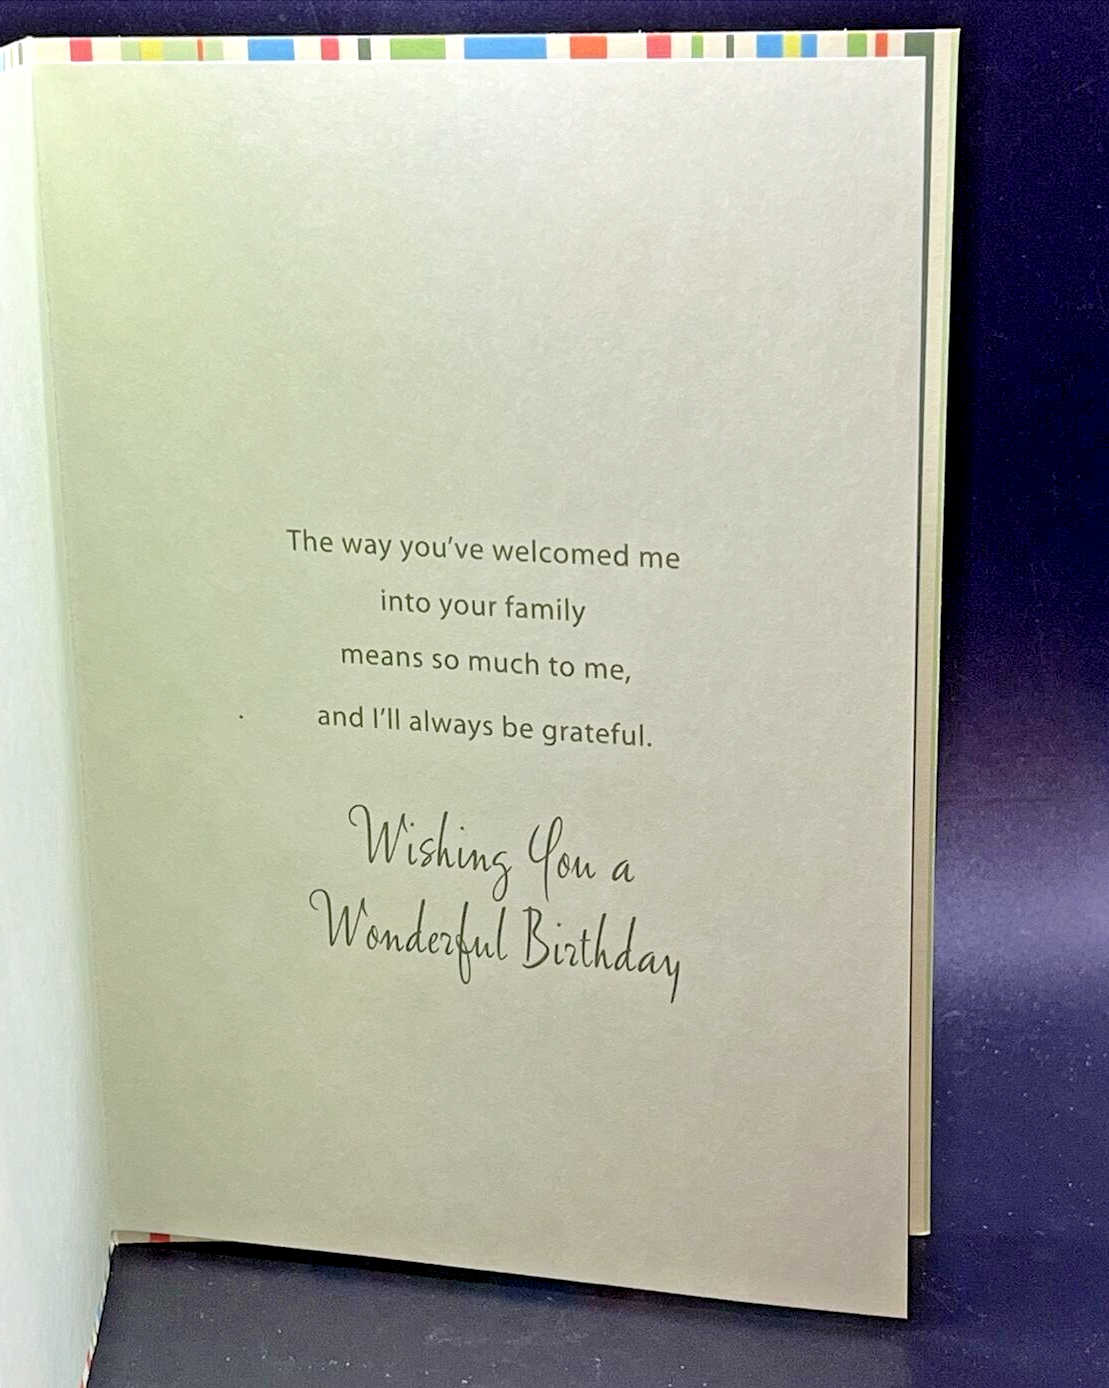 The way you've welcomed me
into your family
means so much to me,
and I'll always be grateful.
Wishing You a
Wonderful Birthday